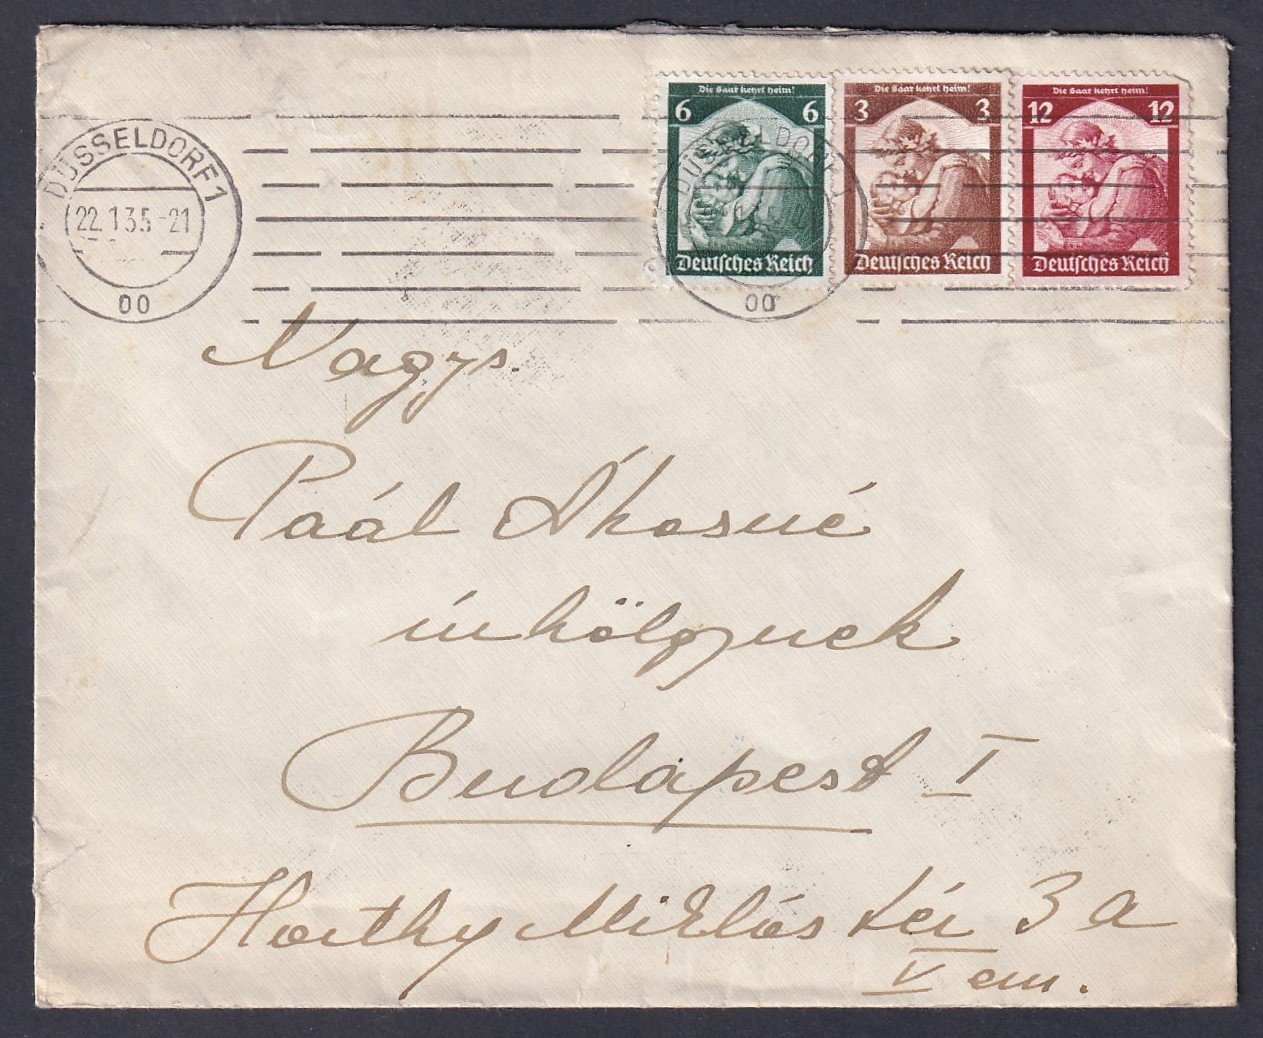 DÜSSELDORF 1
22.1.35-21
00
Die Saar kehrt heim!
6 6
Deutsches Reich
Die Saar kehrt heim!
3 3
Deutsches Reich
Die Saar kehrt heim!
12 12
Deutsches Reich
DÜSSELDORF 1
00
Nagys.
Paál Ákosné
úrhölgynek
Budapest I
Horthy Miklós tér 3 a
V em.